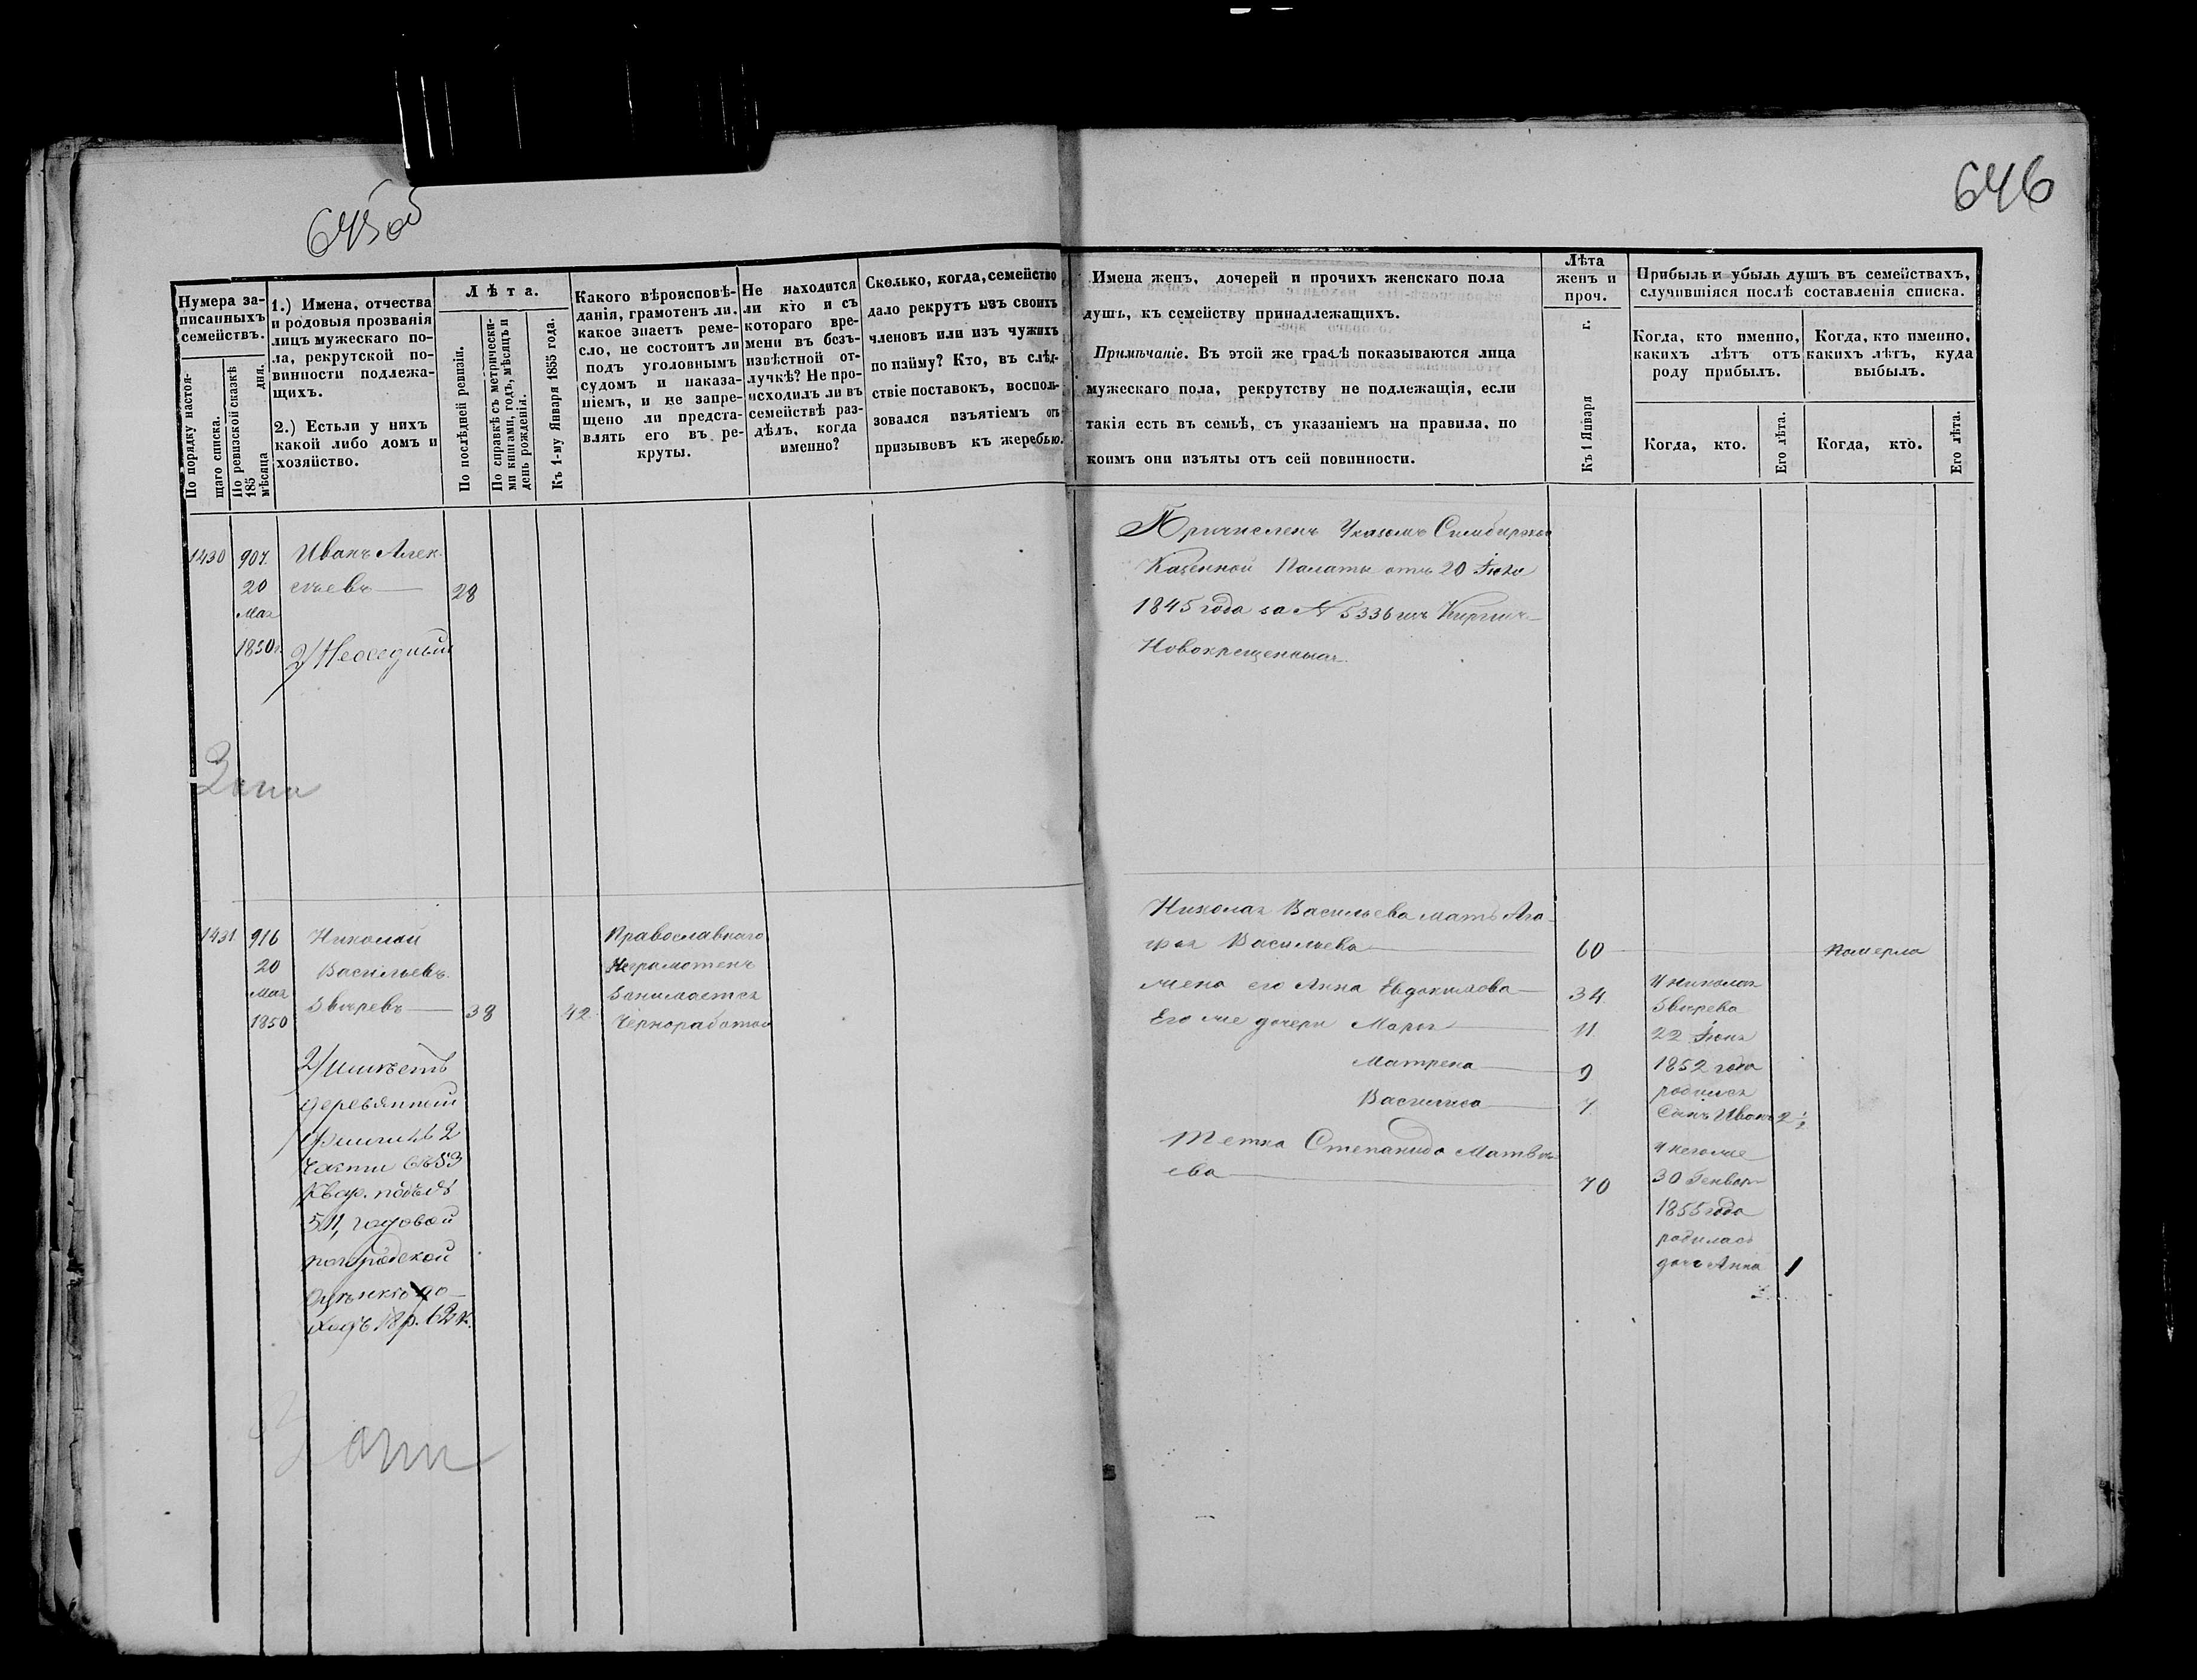 645об
646
Нумера за-
писанныхъ
семействъ.
По порядку настоя-
щаго списка.
По ревизской сказкѣ
185 дня.
мѣсяца
1.) Имена, отчества
и родовыя прозванія
лицъ мужескаго по-
ла, рекрутской по-
винности подлежа-
щихъ.
2.) Естьли у нихъ
какой либо домъ и
хозяйство.
Лѣта.
По послѣдней ревизіи.
По справкѣ съ метрически-
ми книгами, годъ, мѣсяцъ и
день рожденія.
Къ 1-му Января 1855 года.
Какого вѣроисповѣ-
данія, грамотенъ ли.
какое знаетъ реме-
сло, не состоитъ ли
подъ уголовнымъ
судомъ и наказа-
ніемъ, и не запре-
щено ли предста-
влять его въ ре-
круты.
Не находится
ли кто и съ
котораго вре-
мени въ безъ-
извѣстной от-
лучкѣ? Не про-
исходилъ ли въ
семействѣ раз-
дѣлъ, когда
именно?
Сколько, когда, семейство
дало рекрутъ изъ своихъ
членовъ или изъ чужихъ
по найму? Кто, въ слѣд-
ствіе поставокъ, восполь-
зовался изъятіемъ отъ
призывовъ къ жеребью.
Имена женъ, дочерей и прочихъ женскаго пола
душъ, къ семейству принадлежащихъ.
Примѣчаніе. Въ этой же графѣ показываются лица
мужескаго пола, рекрутству не подлежащія, если
такія есть въ семьѣ, съ указаніемъ на правила, по
коимъ они изъяты отъ сей повинности.
Лѣта
женъ и
проч.
Къ 1 Января г.
Прибыль и убыль душъ въ семействахъ,
случившіяся послѣ составленія списка.
Когда, кто именно,
какихъ лѣтъ отъ
роду прибылъ.
Когда, кто именно,
какихъ лѣтъ, куда
выбылъ.
Когда, кто.
Его лѣта.
Когда, кто.
Его лѣта.
1430
907.
20
Мая
1850г.
Иванъ Алек-
сѣевъ
28
2/ Неоседлый
Причисленъ Указомъ Симбирской
Казенной Палаты отъ 20 Іюля
1845 года за № 5336 изъ Киргизъ
Новокрещенныхъ.
1431.
916
20
Мая
1850
Николай
Васильевъ
Звѣревъ
38
42
Православнаго
Неграмотенъ
Занимается
Черноработою
2/ Имѣетъ
деревянный
2
части въ 53
Квар. подъ №
511, годовой
по городской
оцѣнкѣ до-
ходъ 18 р. 62 к.
Николая Васильева мать Ага-
фья Васильева
60
Померла
жена его Анна Евдокимова
34
Его же дочери Марья
11
Матрена
9
Василиса
7
Тетка Степанида Матвѣ-
ева
70
У Николая
Звѣрева
22 Іюня
1852 года
родился
Сынъ Иванъ 2 1/2
У него же
30 Генваря
1855 года
родилась
дочь Анна 1